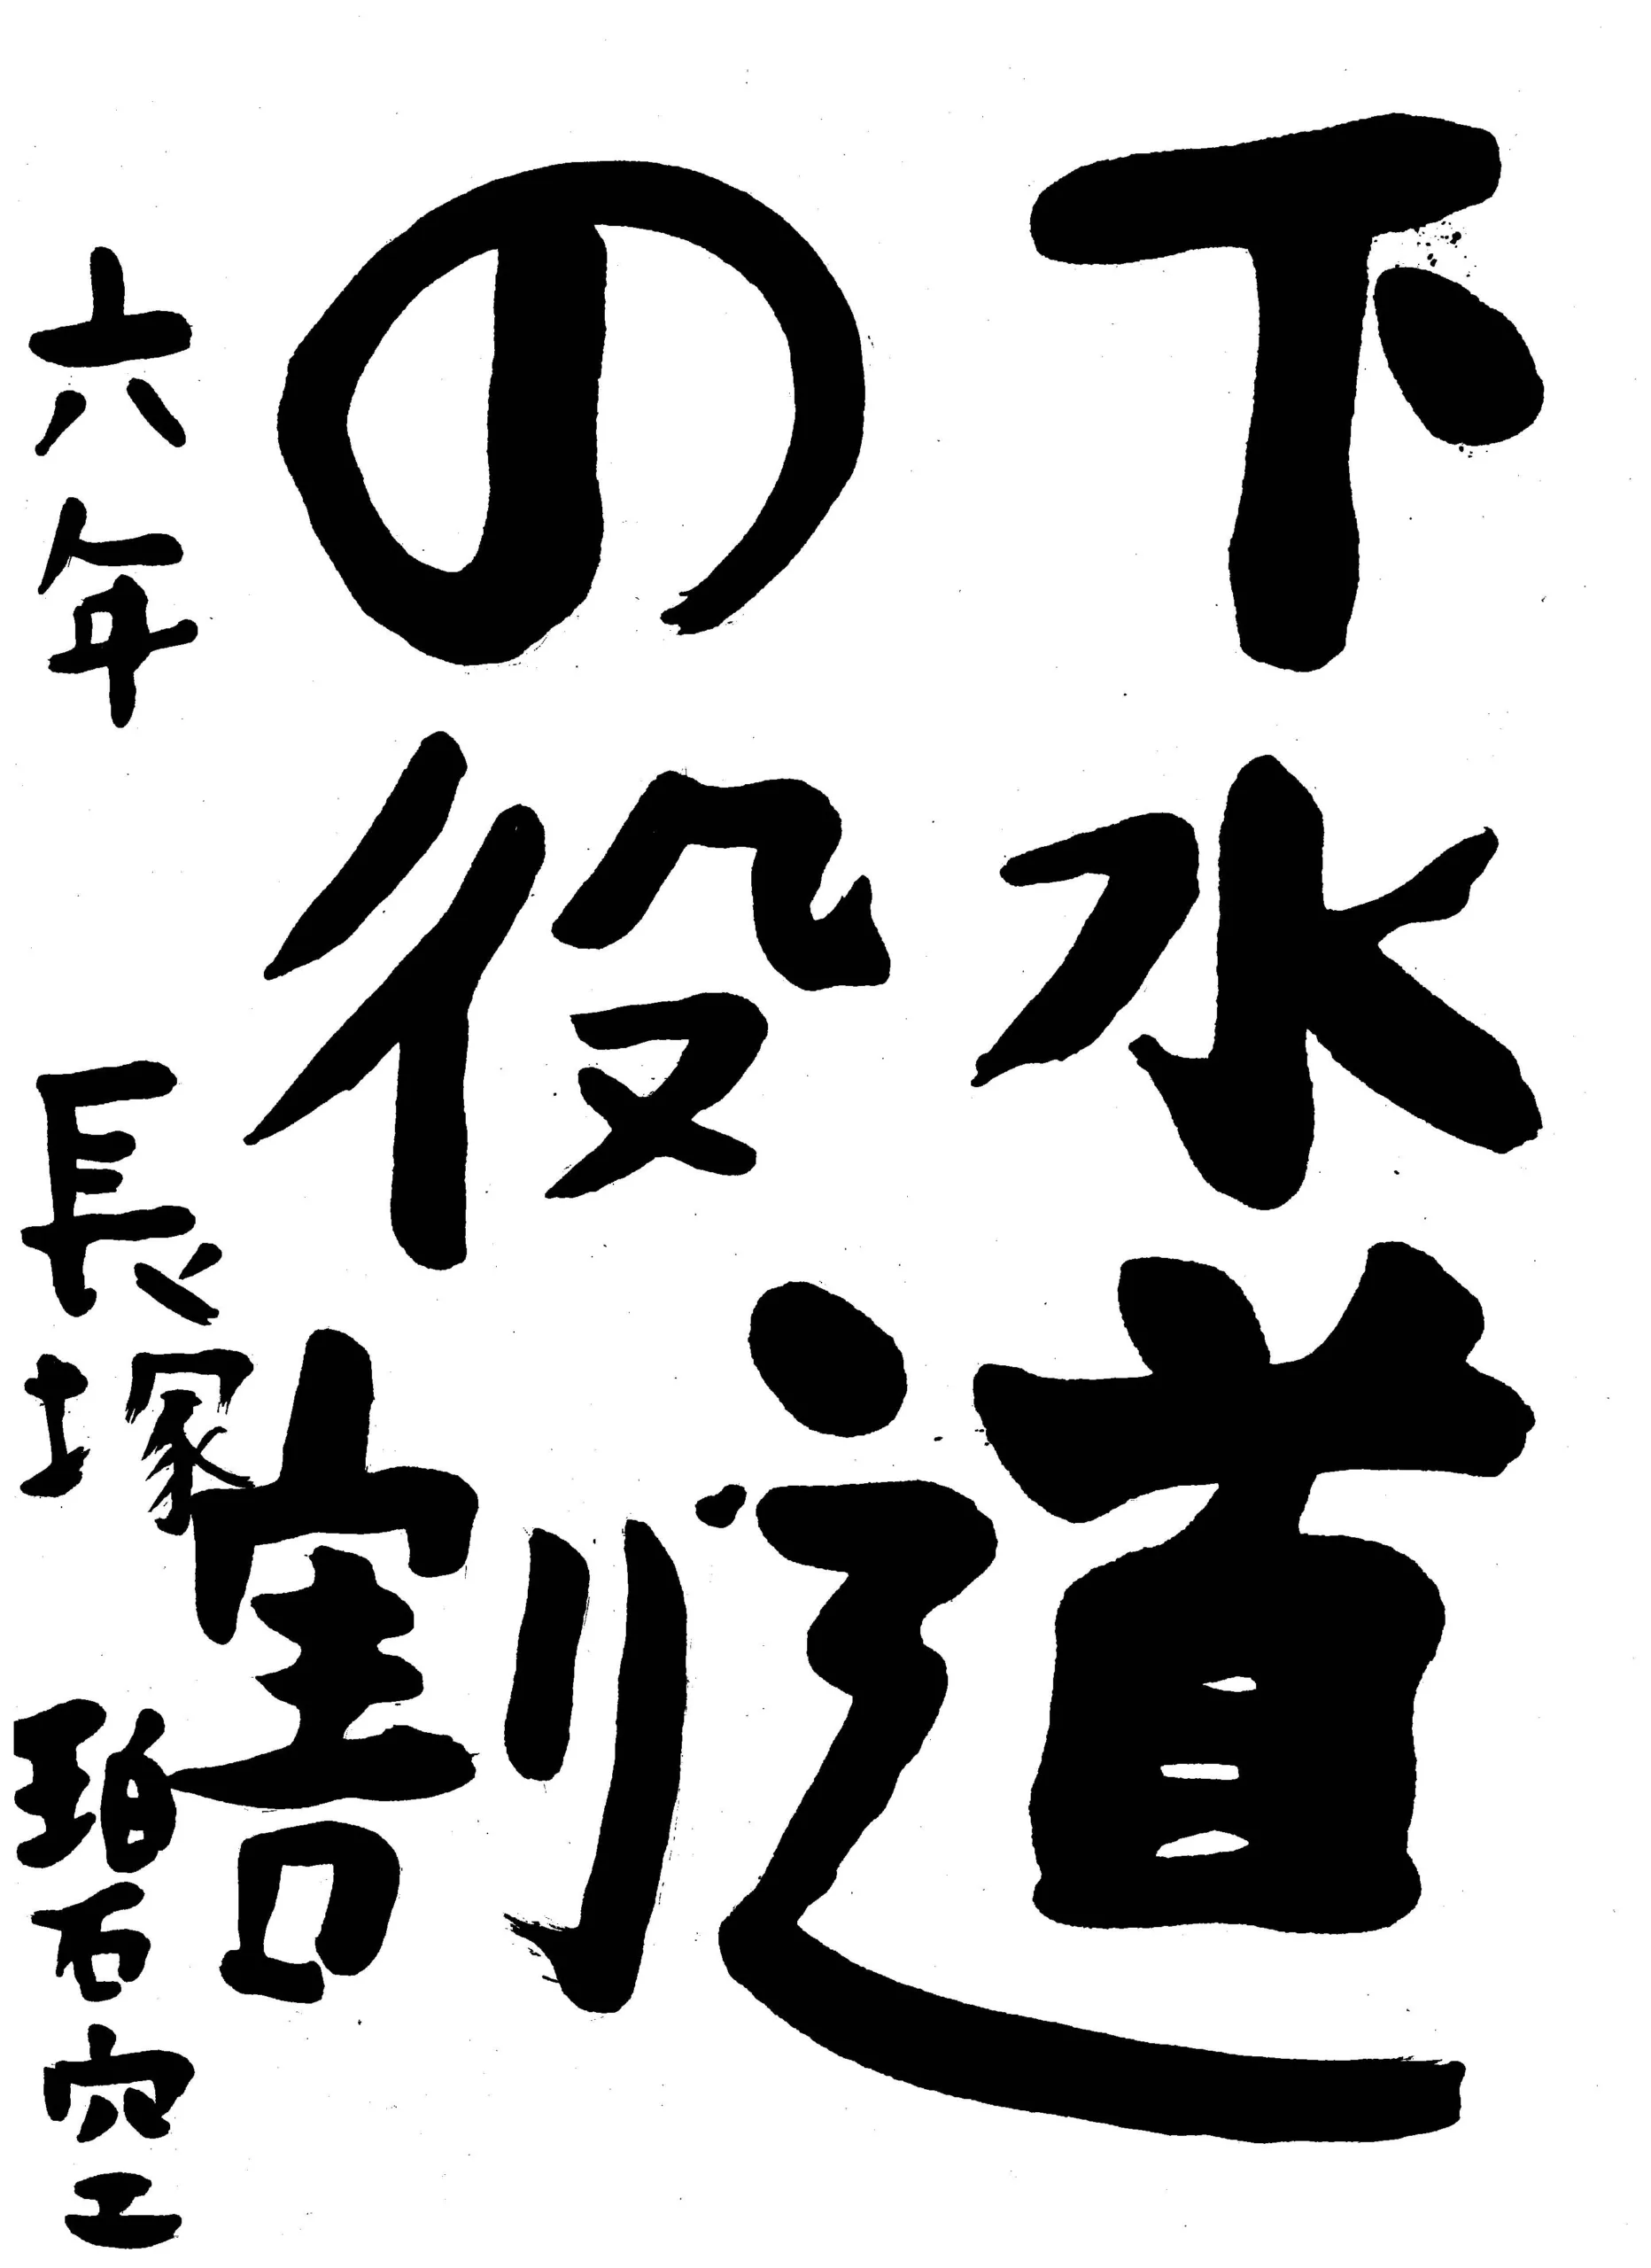 下水道
の役割
六年 長塚珀石空